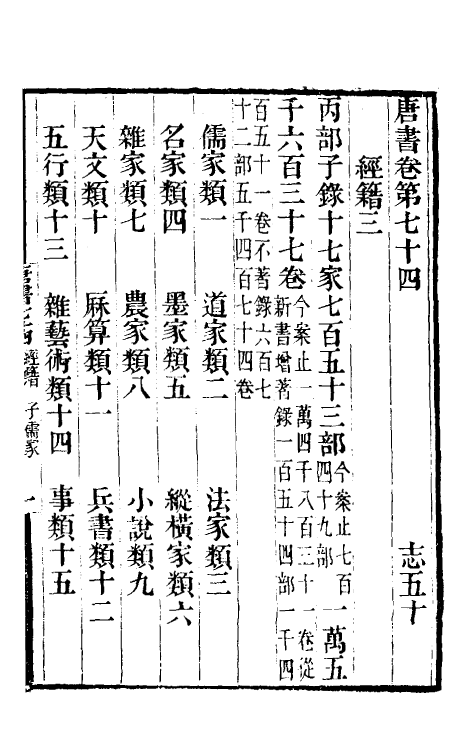 唐書卷第七十四 志五十
經籍三
丙部子錄十七家七百五十三部今案止七百四十九部一萬五
千六百三十七卷今案止一萬四千八百三十一卷從新書增著錄一百五十四部一千四
百五十一卷不著錄六百七十二部五千四百七十四卷
儒家類一 道家類二 法家類三
名家類四 墨家類五 縱橫家類六
雜家類七 農家類八 小說類九
天文類十 厤算類十一 兵書類十二
五行類十三 雜藝術類十四 事類十五
經籍 子儒家 一